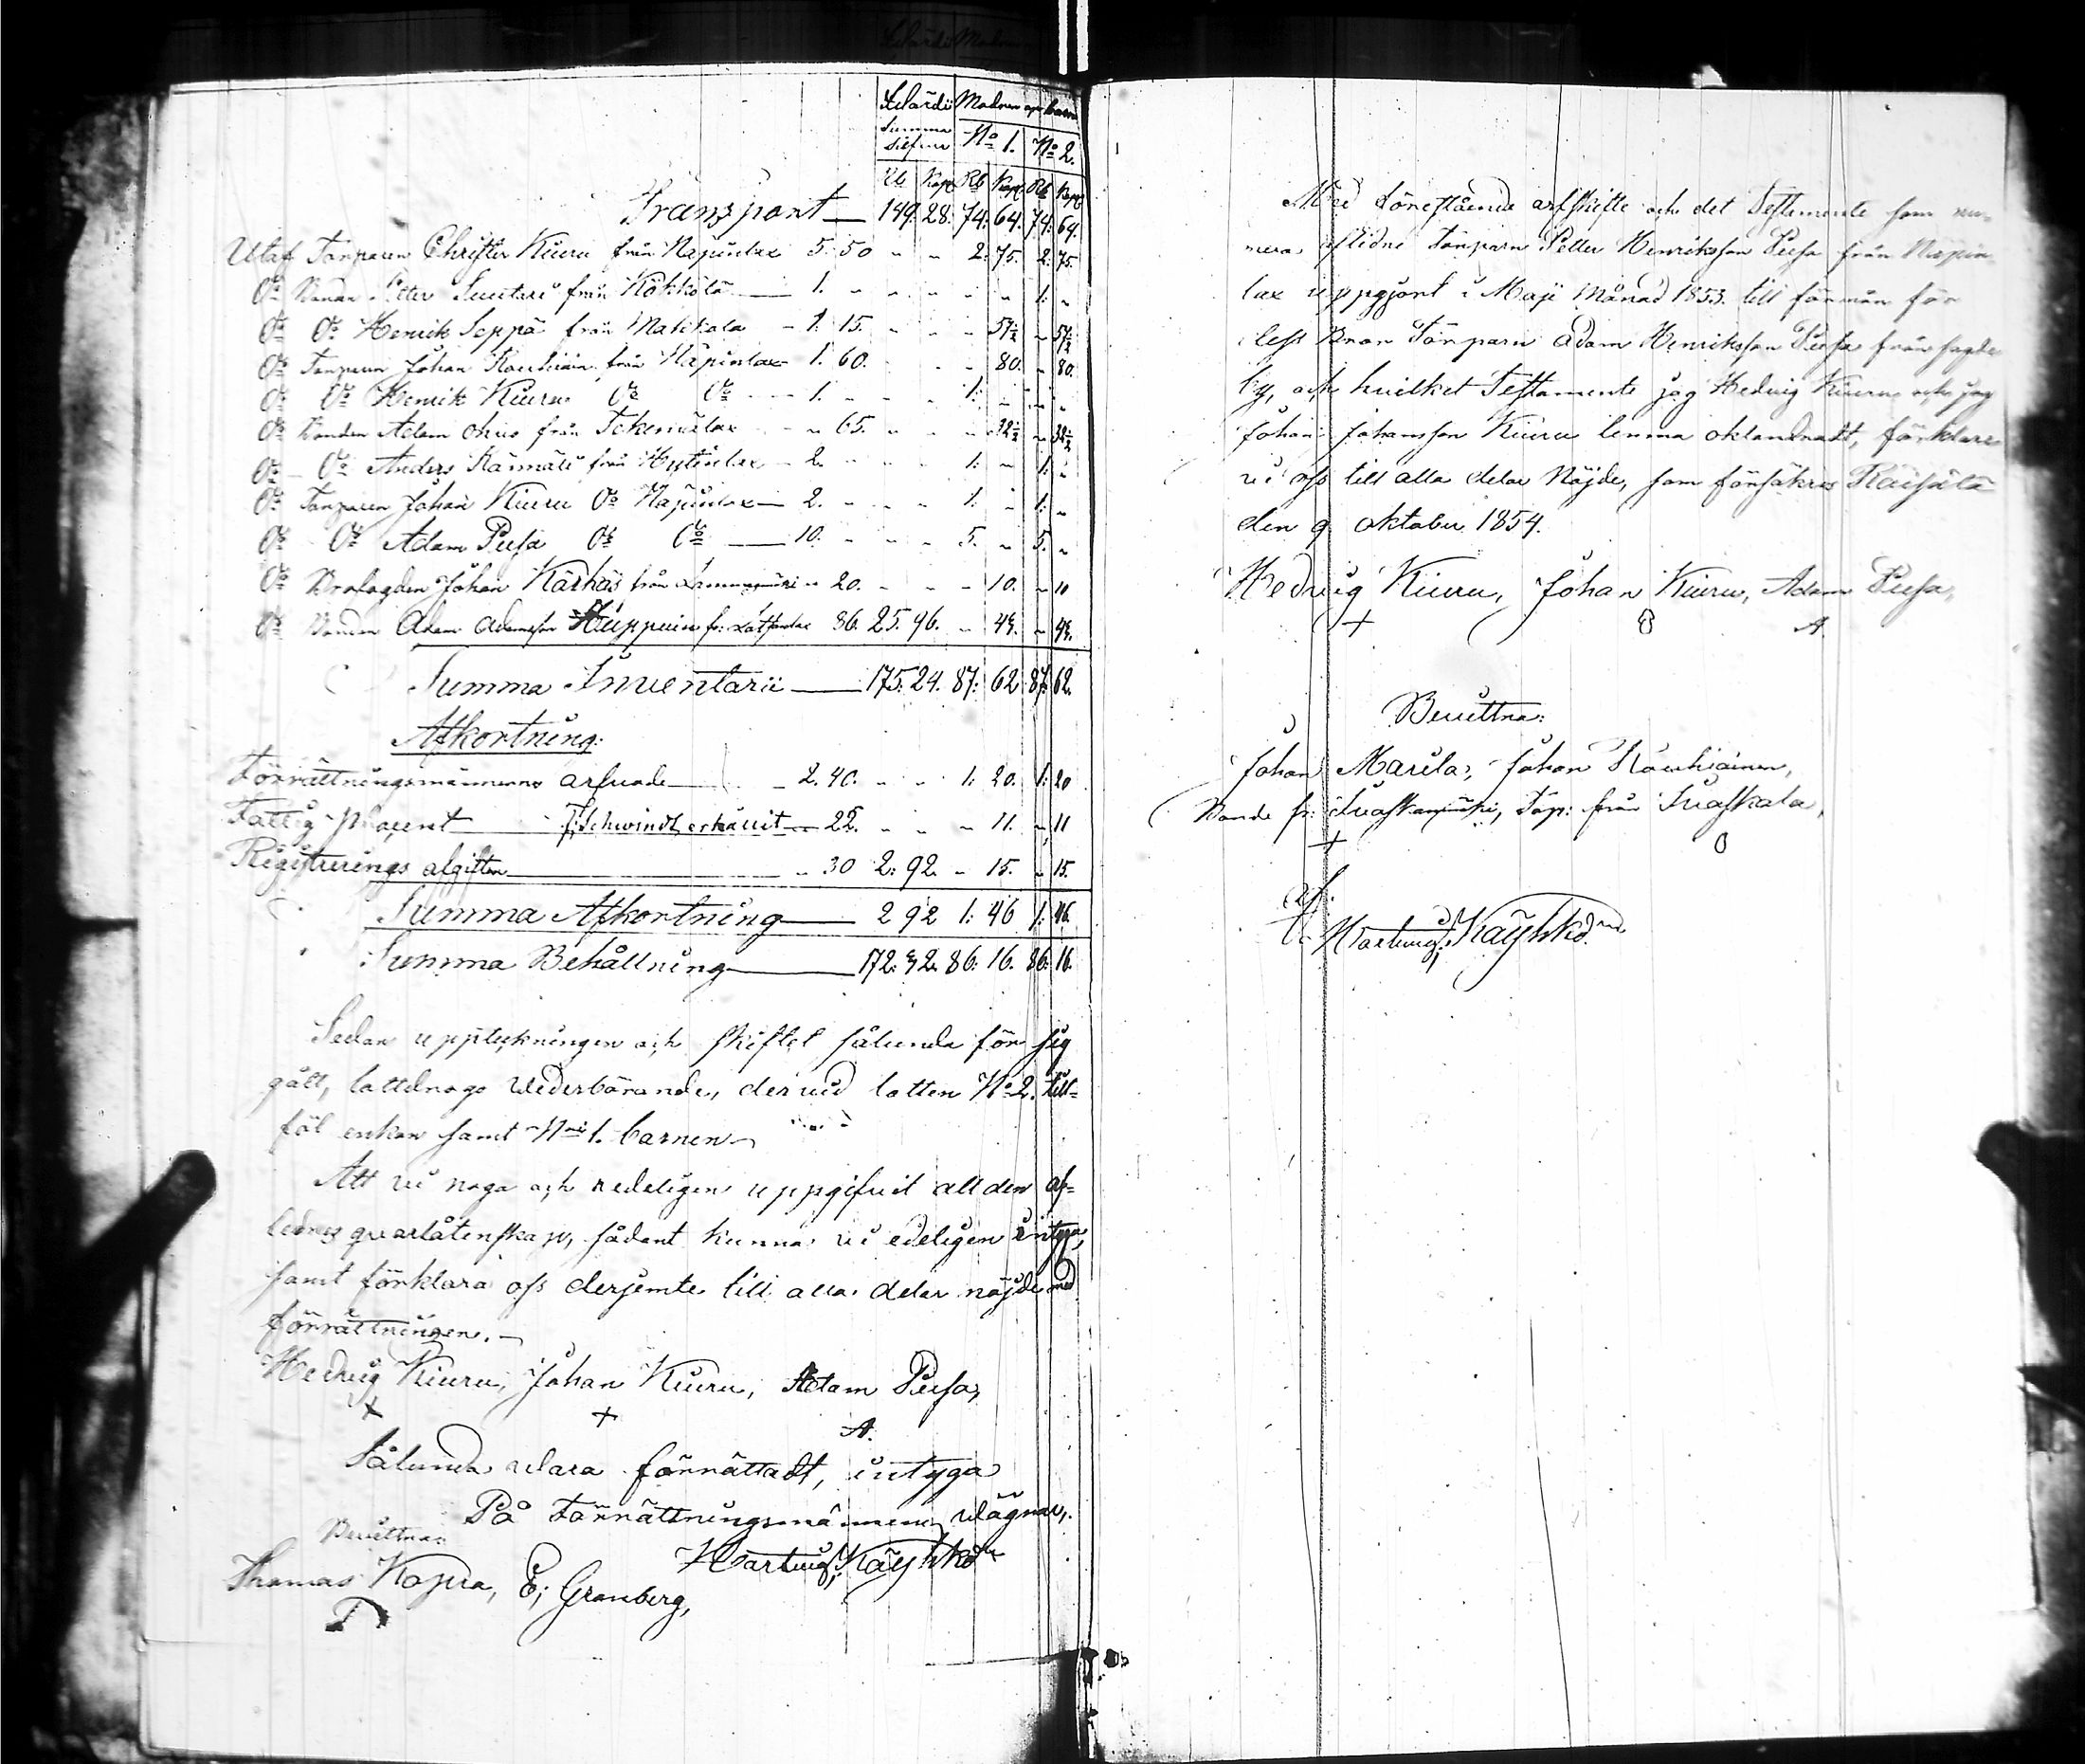 Wärde Modren och barn
Summa Silfver No 1. No 2.
Rb Kop Rb Kop Rb Kop
Transport 149. 28. 74. 64. 74. 64.
Utaf Torparen Christer Kiuru från Näpinlax 5. 50 " " 2. 75. 2. 75.
Do Bonden Petter från Kökkölä 1. " " " " " 1. "
Do Do Henrik Seppä från 1. 15. " " " 57½ " 57½
Do Torparen Johan Rouhiain från Näpinlax 1. 60. " " " 80. " 80.
Do Do Henrik Kiuru Do Do 1. " " " 1. " " "
Do Bonden Adam från " 65. " " " 32½ " 32½
Do Do Anders från 2. " " " 1. " 1. "
Do Torparen Johan Kiuru Do Näpinlax 2. " " " 1. " 1. "
Do Do Adam Pusa Do Do 10. " " " 5. " 5. "
Do Johan Kärhäs från " 20. " " " 10. " 10
Do Bonden Adam Adamsson Huppuin fr: 86. 25. 96. " 43. " 43.
Summa Inventarii 175. 24. 87. 62 87. 62.
Afkortning:
Förrättningsmännerne arfvode 2. 40. " " 1. 20. 1. 20
Fattig procent f. Schwindt erhållit " 22. " " " 11. " 11
Registrerings afgiften " 30 2. 92. " 15. " 15.
Summa Afkortning 2 92 1. 46 1. 46.
Summa Behållning 172. 32. 86. 16. 86. 16.
Sedan uppteckningen och skiftet sålunda för sig
gått, lottdrogo Wederbörande, dervid lotten No 2. till=
föl enkan samt No 1. barnen
Att vi noga och redeligen uppgifvit all den af=
lednes qvarlåtenskap, sådant kunna vi edeligen intyga,
samt förklara oss derjemte till alla delar nöjde med
förrättningen.
Hedvig Kiuru, Johan Kiuru, Adam Pusa,
X + A.
Sålunda wara förrättadt, intyga
På Förrättningsmännens wägnar.
Bevittna:
Hartvig Käyhkö
Thomas Kopra, E; Granberg,
Med föreståendè arfskifte och det Testemente som nu=
mera aflidne Torparn Petter Henriksson Pusa från Näpin
lax uppgjort i Maji Månad 1853. till förmån för
dess Bror Torparn Adam Henriksson Pusa från sagde
by, och hvilket Testamente jag Hedvig Kiuru och jag
Johan Johansson Kiuru lemna oklandradt, förklare
vi oss till alla delar Nöjde, som försäkras Räisälä
den 9 oktober 1854.
Hedvig Kiuru, Johan Kiuru, Adam Pusa,
+ A.
Bevittna:
Johan Marila, Johan Rouhiainen,
Bonde fr: Ivaskanmäki, Torp: från Ivaskala,
+
Hartvig Käyhkö